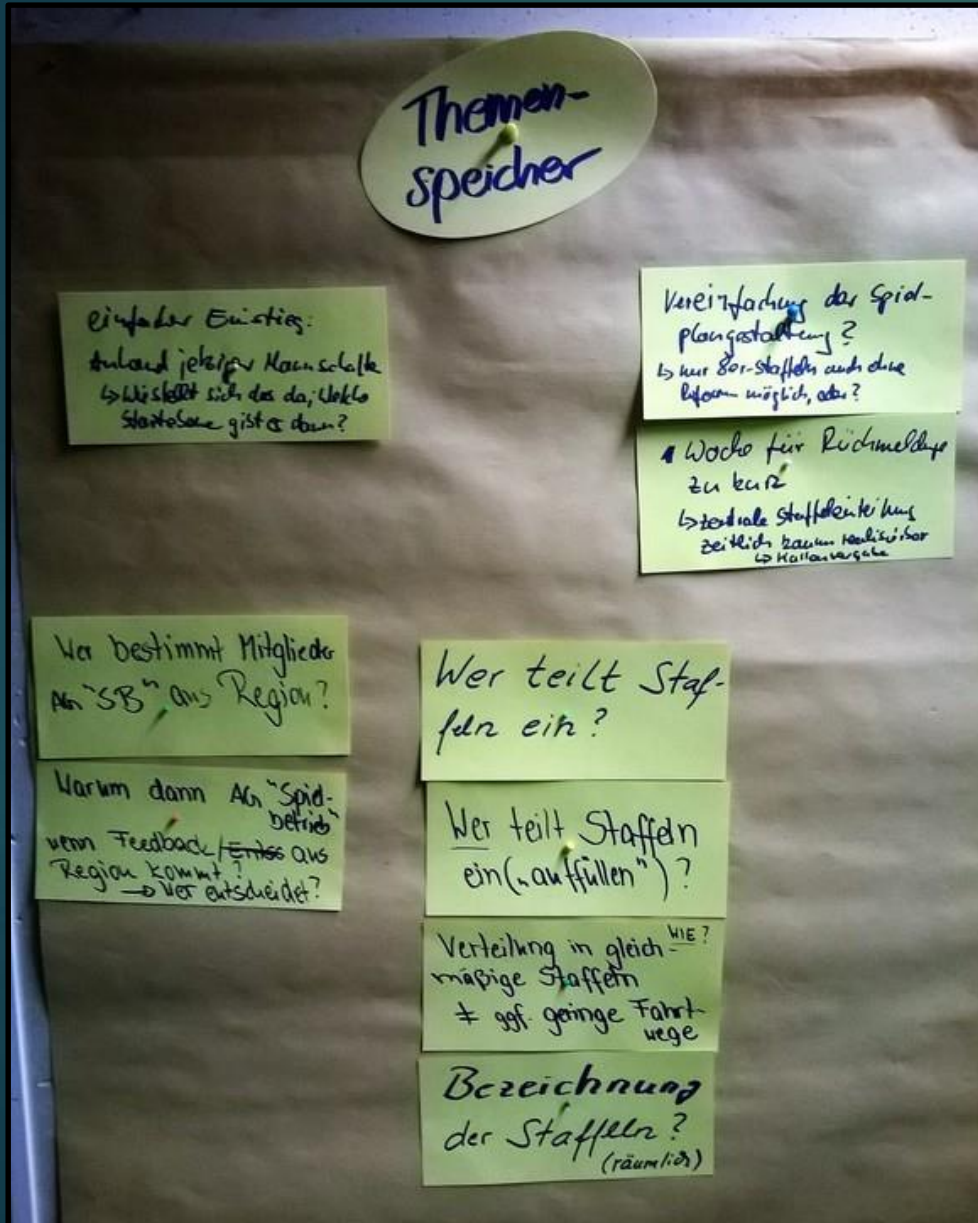 Themen-
speicher
einfacher Einstieg:
Anhand jetziger Mannschafte
↳ Wie stellt sich das da, Welche
Startebene gibt es dann?
Vereinfachung der Spiel-
plangestaltung?
↳ nur 8er-Staffeln auch ohne
Reform möglich, oder?
1 Woche für Rückmeldunge
zu kurz
↳ zentrale Staffeleinteilung
zeitlich kaum realisierbar
↳ Hallenvergabe
Wer bestimmt Mitglieder
AG "SB" aus Region?
Warum dann AG "Spiel-
betrieb"
wenn Feedback/ aus
Region kommt?
→ Wer entscheidet?
Wer teilt Staf-
feln ein?
Wer teilt Staffeln
ein („auffüllen")?
Verteilung in gleich- WIE?
mäßige Staffeln
≠ ggf. geringe Fahrt-
wege
Bezeichnung
der Staffeln?
(räumlich)